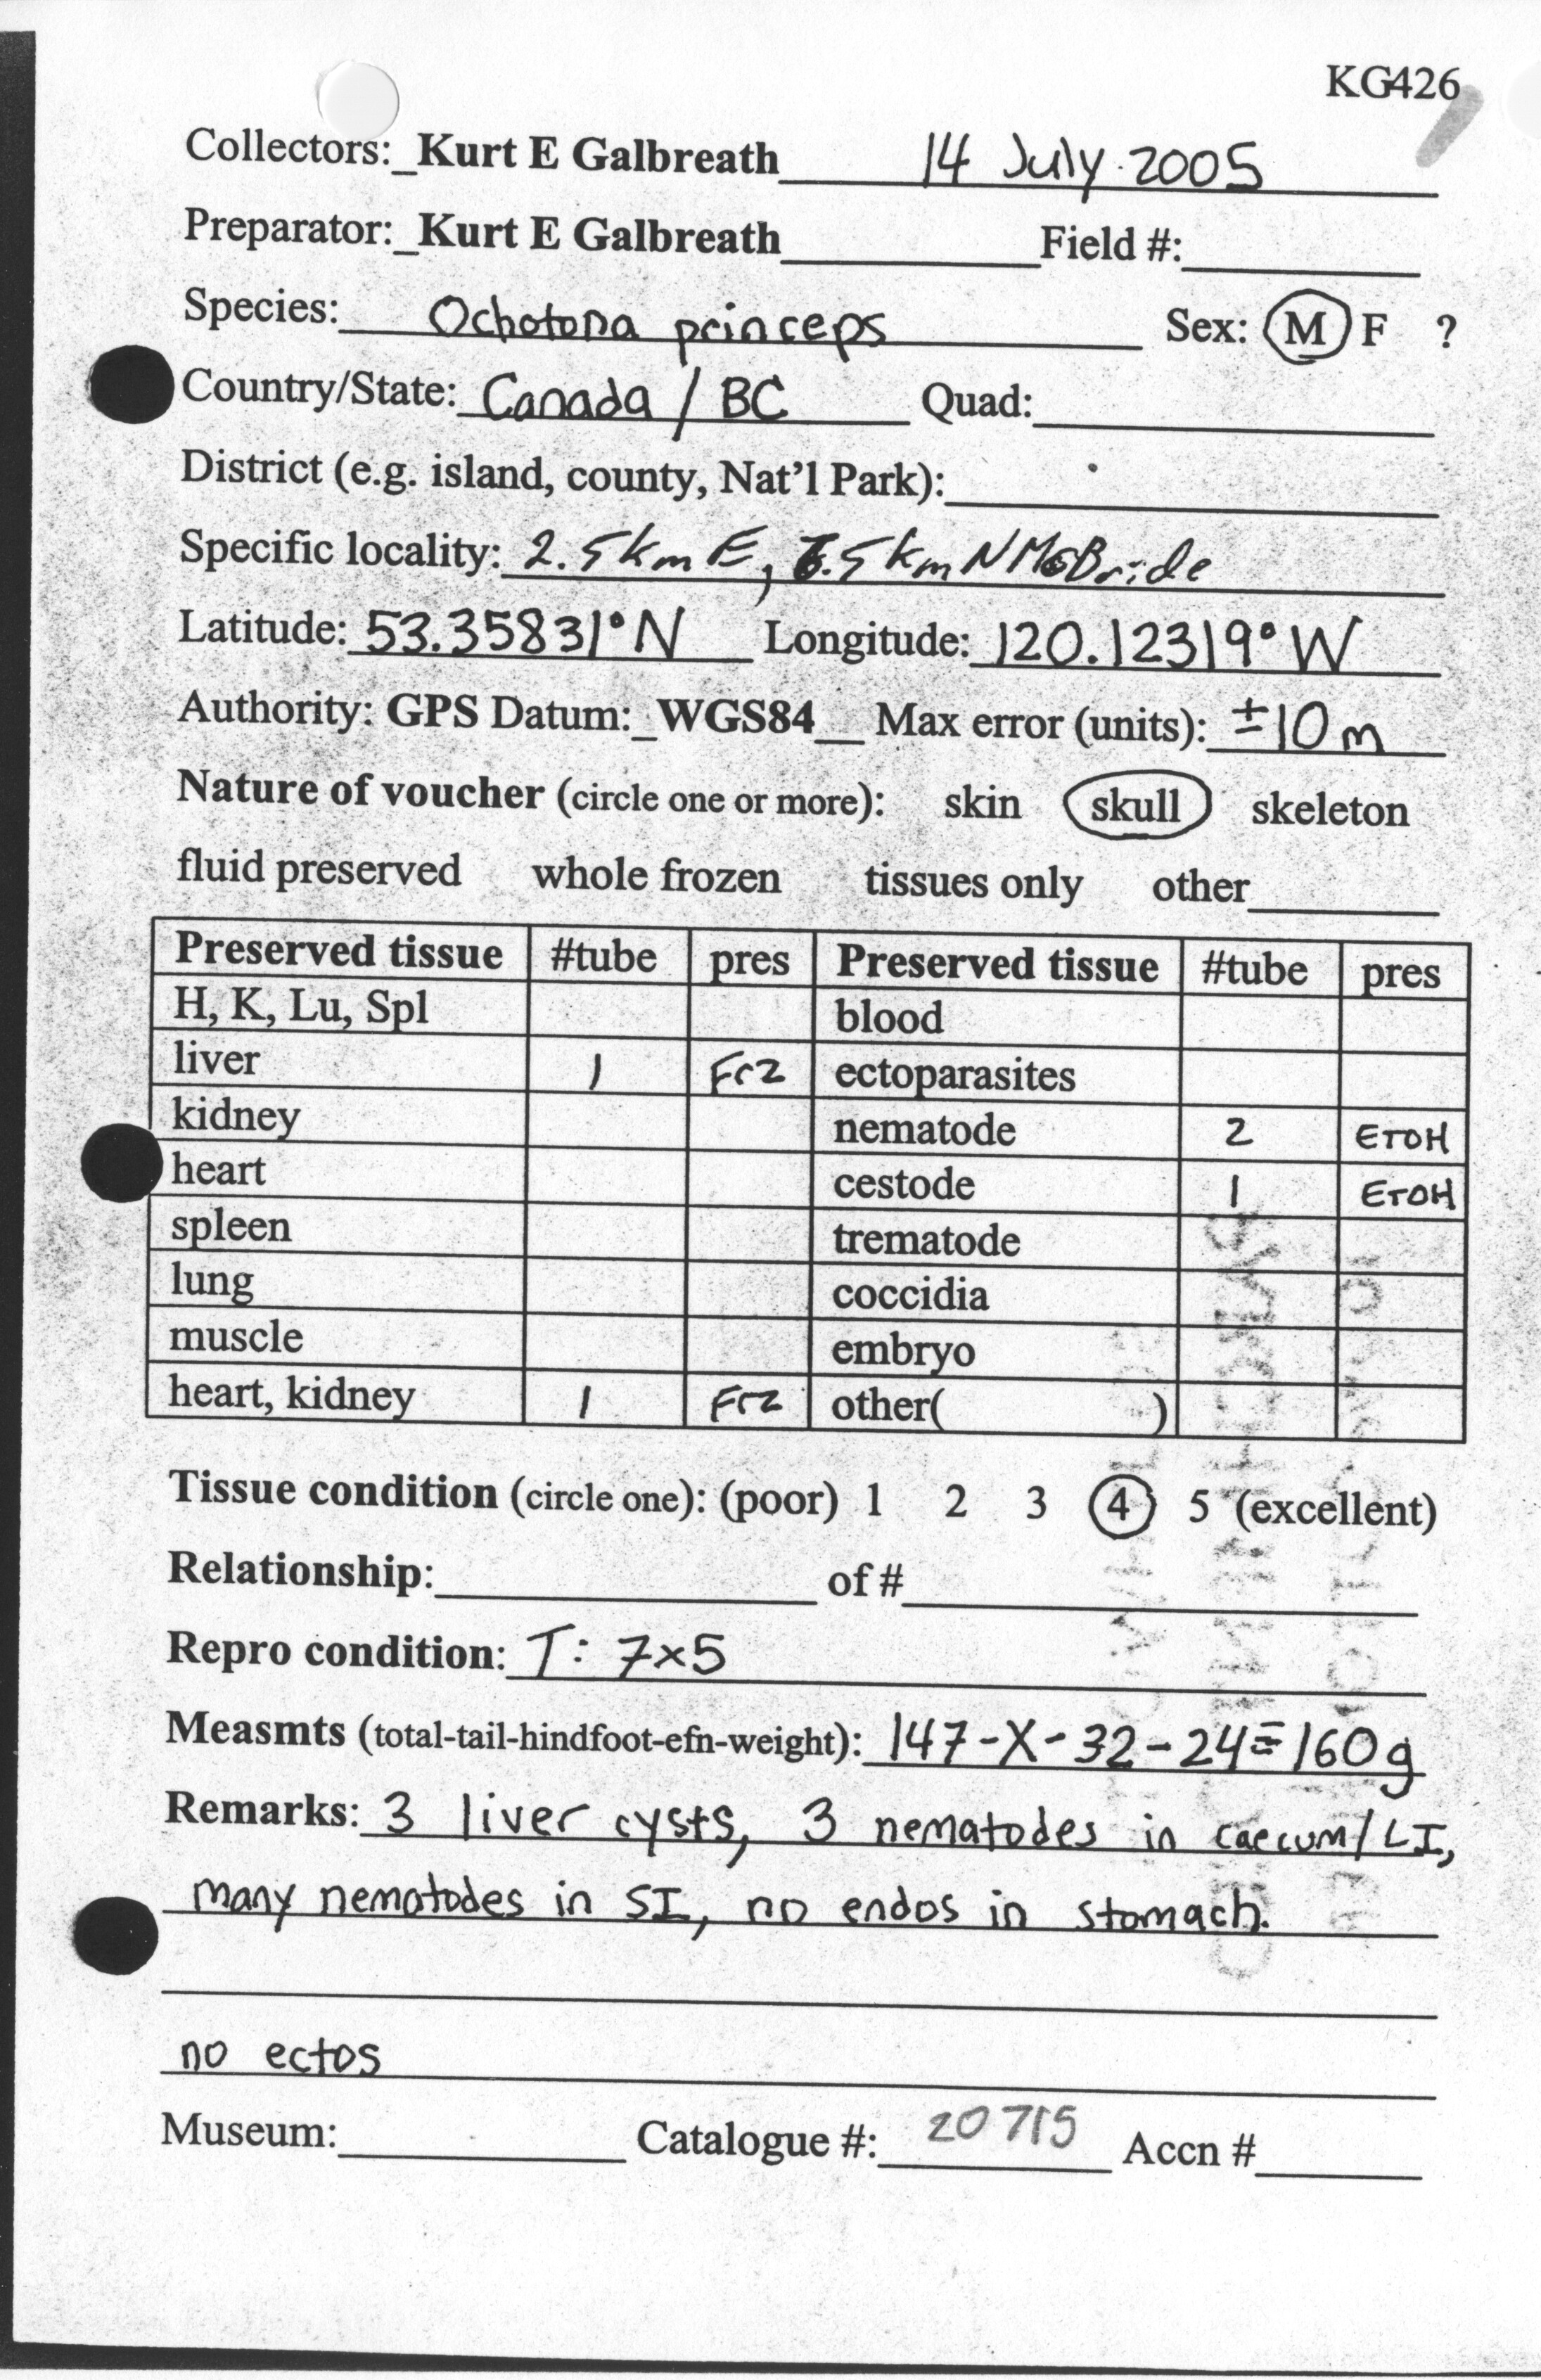 KG426
Collectors: Kurt E Galbreath 14 July 2005
Preparator: Kurt E Galbreath Field #:
Species: Ochotona princeps Sex: M F ?
Country/State: Canada / BC Quad:
District (e.g. island, county, Nat'l Park):
Specific locality: 2.5 km E, 6.5 km N McBride
Latitude: 53.35831°N Longitude: 120.12319°W
Authority: GPS Datum: WGS84 Max error (units): ±10m
Nature of voucher (circle one or more): skin skull skeleton
fluid preserved whole frozen tissues only other
Preserved tissue #tube pres Preserved tissue #tube pres
H, K, Lu, Spl blood
liver 1 Frz ectoparasites
kidney nematode 2 ETOH
heart cestode 1 ETOH
spleen trematode
lung coccidia
muscle embryo
heart, kidney 1 Frz other( )
Tissue condition (circle one): (poor) 1 2 3 4 5 (excellent)
Relationship: of #
Repro condition: T: 7x5
Measmts (total-tail-hindfoot-efn-weight): 147-X-32-24≡160g
Remarks: 3 liver cysts, 3 nematodes in caecum/LI,
many nematodes in SI, no endos in stomach.
no ectos
Museum: Catalogue #: 20715 Accn #